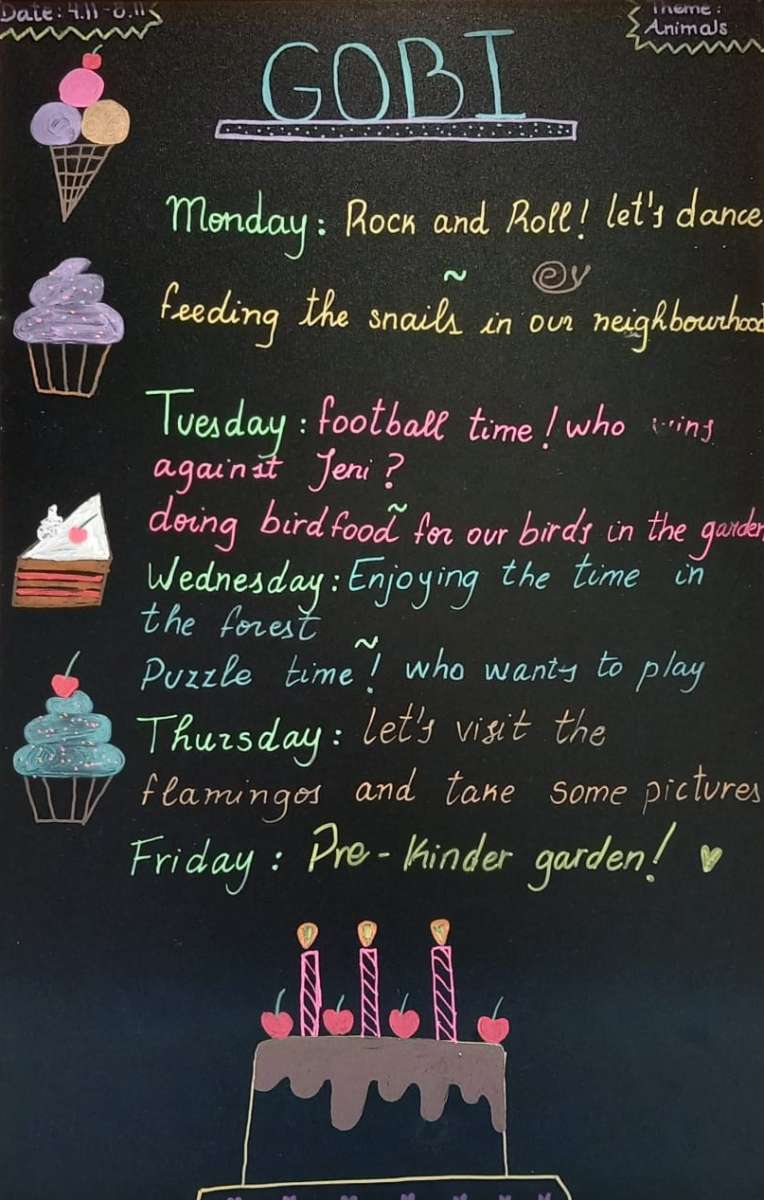 Date: 4.11 - 8.11
Theme:
Animals
GOBI
Monday: Rock and Roll! let's dance
~
feeding the snails in our neighbourhood
Tuesday: football time! who wins
against Jeni?
~
doing birdfood for our birds in the garden
Wednesday: Enjoying the time in
the forest
~
Puzzle time! who wants to play
Thursday: let's visit the
flamingos and take some pictures
Friday: Pre-Kinder garden!